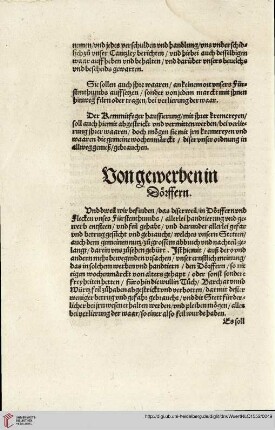 nemen/ vnd jedes verschulden vnd handlung/ vns vnder schid-
lich zů vnser Cantzley berichten/ vnd hieher auch desselbigen
waar auffheben vnd behalten/ vnd darüber vnsers beuelchs
vnd bescheids gewarten.
Sie sollen auch jhre waaren/ an keinem ort vnsers Für-
stenthumbs auffsetzen/ sonder von jedem marckt mit jhnen
hinweg füren oder tragen/ bei verlierung der waar.
Der Kemmitfeger haussierung/ mit jhrer kremereyen/
soll auch hiemit abgestrickt vnd vermitten werden/ bei verlie-
rung jhrer waaren/ doch mögen sie mit jren kremereyen vnd
waaren die gemeine wochenmärckt/ diser vnser ordnung in
allweg gemeß/ gebrauchen.
Von gewerben in
Dörffern.
Vnd dweil wir befinden/ das diser weil in Dörffern vnd
Flecken vnsers Fürstenthumbs/ allerlei handtierung vnd ge-
werb entsteen/ vnd feil gehabt/ vnd darunder allerlei gefar
vnd betrug gesücht vnd gebraucht/ welches vnsern Stetten/
auch dem gemeinen nutz zů grossem abbruch vnd nachteil ge-
langt/ darein vns zůsehen gebürt. Ist hiemit/ auß der vnd
andern mehr bewegenden vrsachen/ vnser ernstlich meinung/
das in solchem werben vnd handtiern/ den Dörffern/ so nit
eigen wochenmärckt von alters gehapt/ oder sonst sonder
freyheiten hetten/ fürohin die wullin Tůch/ Barchat vnd
Würtz feil zůhaben abgestrickt vnd verbotten/ damit dester
weniger betrug vnd gefahr gebraucht/ vnd die Stett fürder-
licher bei jrem wesen erhalten werden/ vnd pleiben mögen/ alles
bei verlierung der waar/ so einer also feil wurde haben.
Es soll